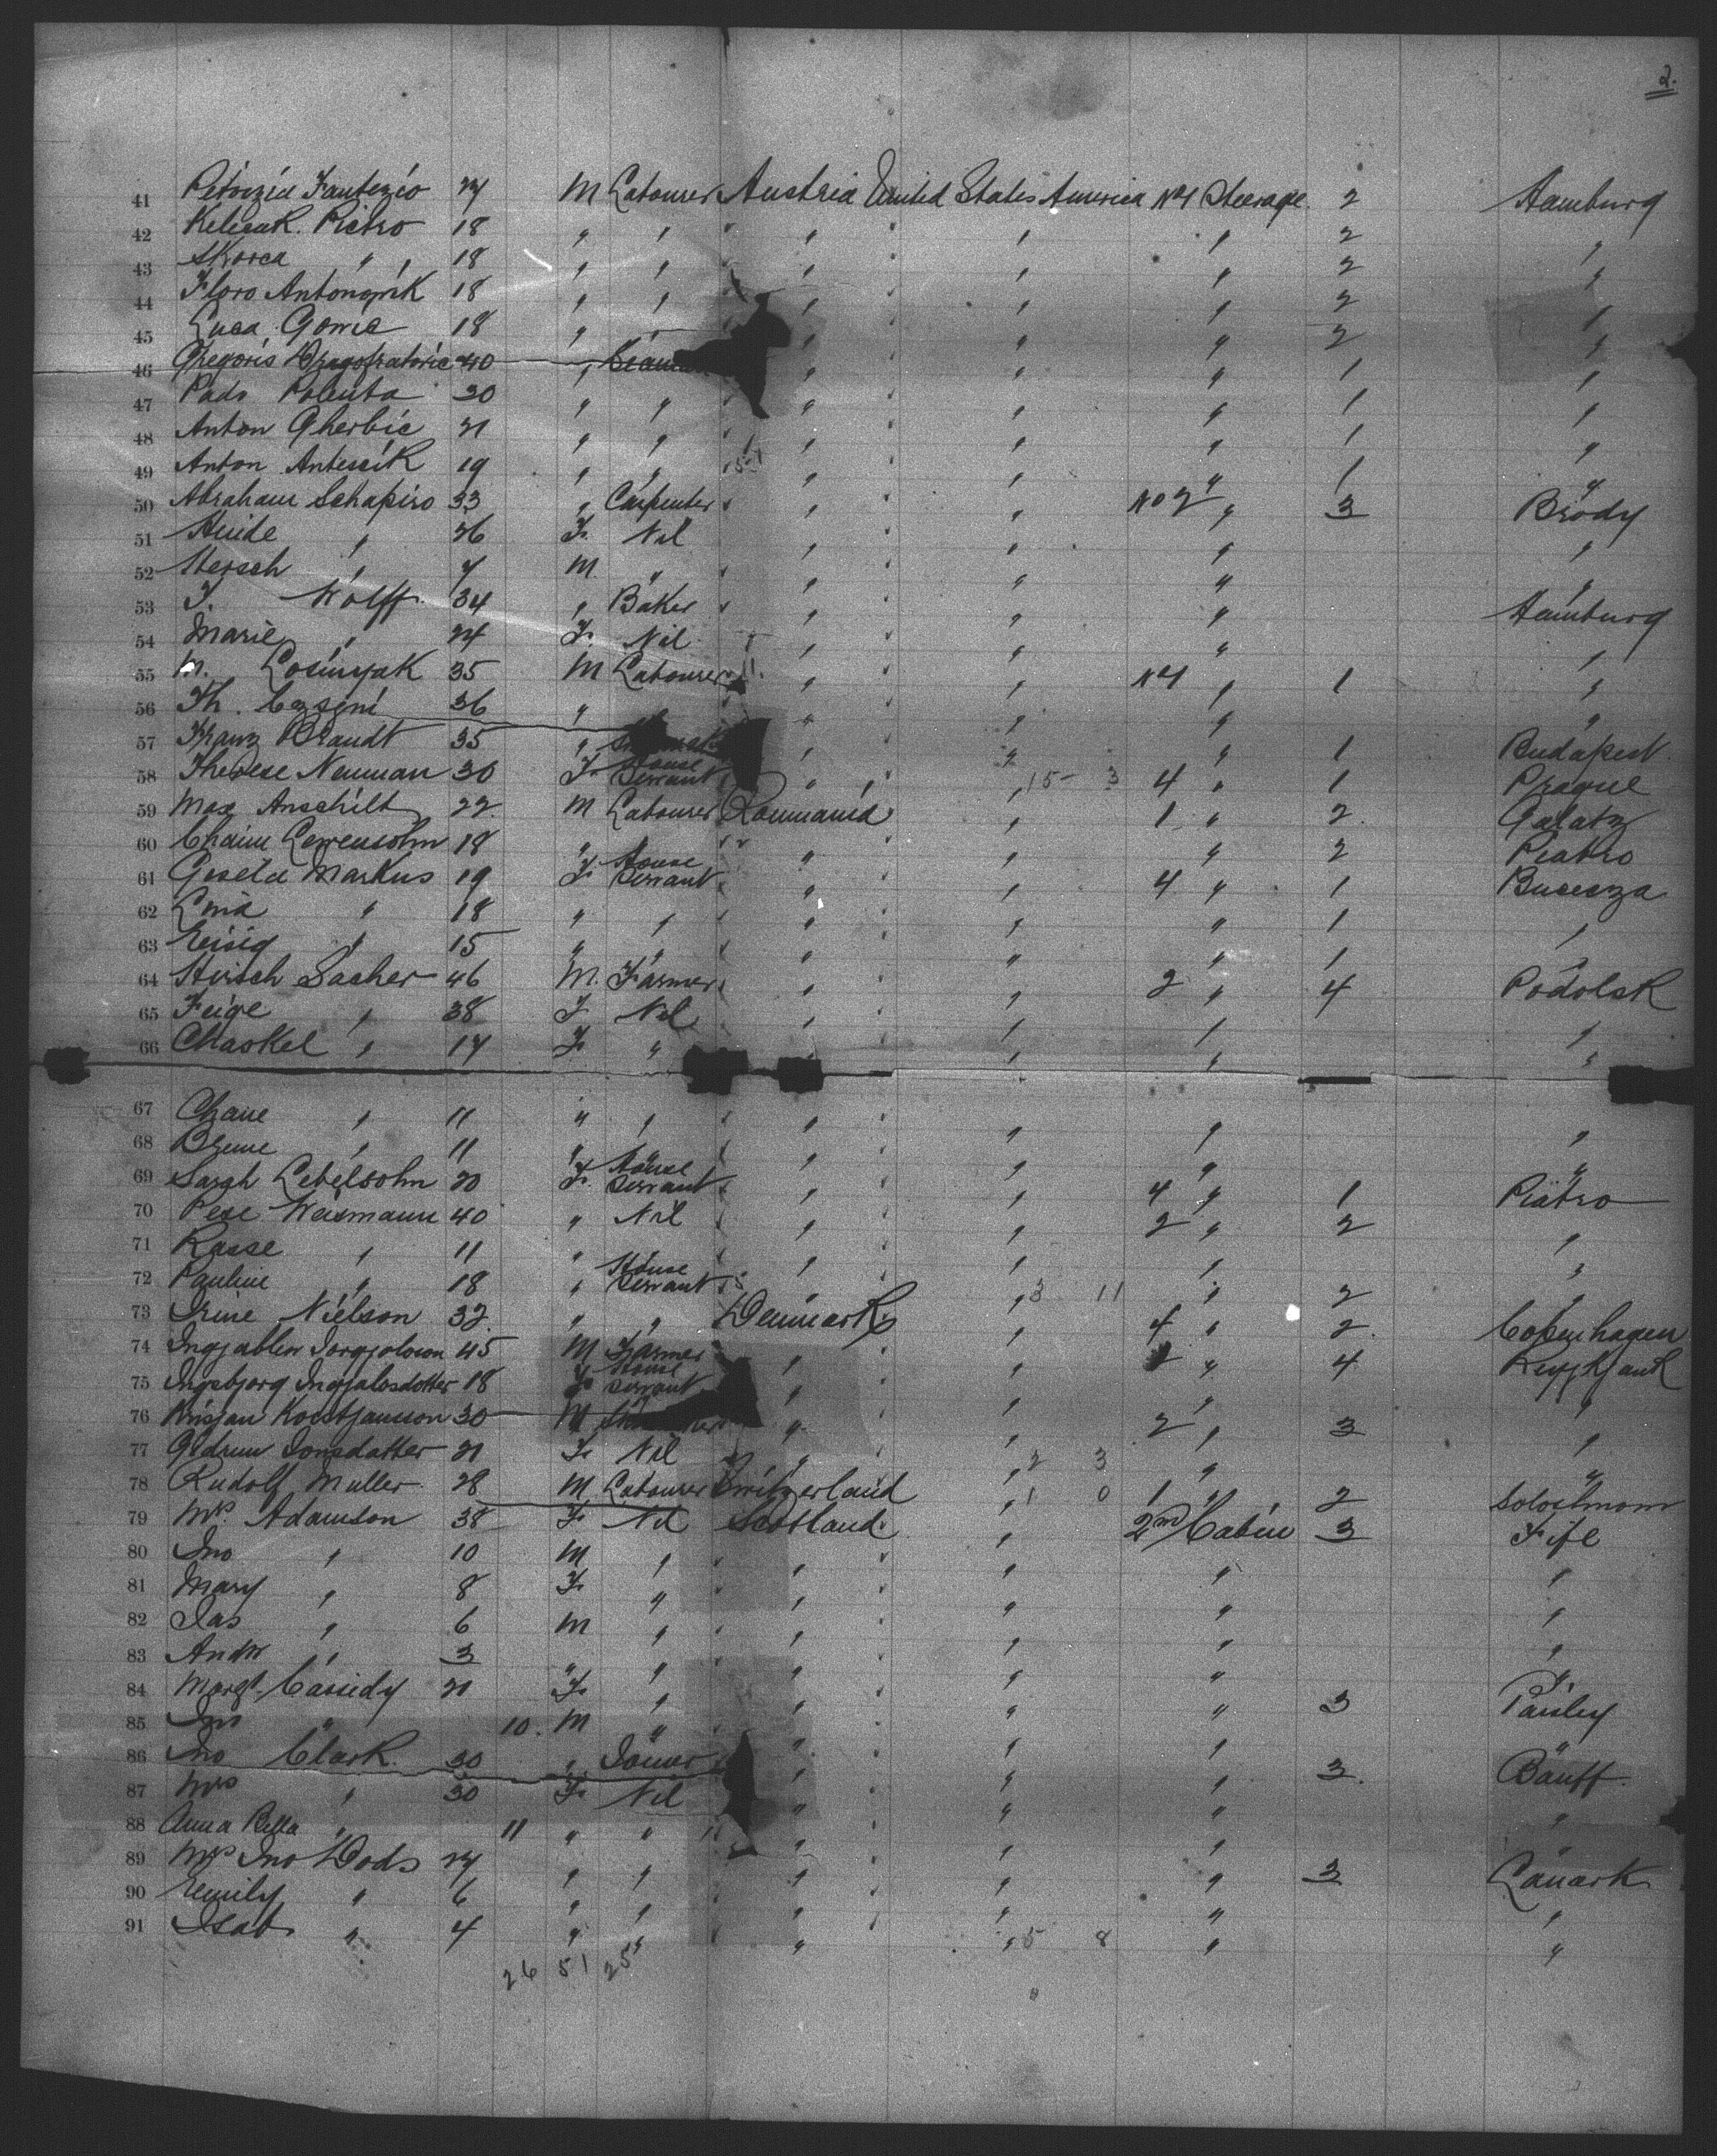 2.
41 Fantezio 24 M Labourer Austria United States America No 1 Steerage 2 Hamburg
42 Pietro 18 " " " " " " 2 "
43 Skorca " 18 " " " " " " 2 "
44 Floro 18 " " " " " " 2 "
45 Luca Gomic 18 " " " " " " 2 "
46 Gregoris 40 " " " " 1 "
47 Polenta 30 " " " " " " 1 "
48 Anton Gherbic 21 " " " " " " 1 "
49 Anton 19 " " " " " " 1 "
50 Abraham Schapiro 33 " Carpenter " " No 2 " 3 Brody
51 Huide " 26 F. Nil " " " "
52 Hersch " 7 M. " " " " "
53 J. Wolff. 34 " Baker " " " Hamburg
54 Marie " 24 F. Nil " " " "
55 M. 35 M Labourer " " No 1 " 1 "
56 Th. 36 " " " " "
57 Franz Brandt 35 " " " " 1 Budapest
58 Therese Neuman 30 F. House Servant " " 15 - 3 4 " 1 Prague
59 Max Anschilt 22. M Labourer Roumania " 1 " 2. Galatz
60 Chaim Lewensohn 18 " " " " 2 Piatro
61 Gisela Markus 19 F House Servant " " 4 " 1
62 " 18 " " " " " 1 "
63 Eisig " 15 " " " " " 1 "
64 Hirsch Sacher 46 M. Farmer " " 2 " 4 Podolsk
65 Feige " 38 F Nil " " " "
66 Chaskel " 14 F. " " " " "
67 Chane " 11 " " " " " "
68 Breme " 11 " " " " " "
69 Sarah Lebelsohn 20 F. House Servant " " 4 " 1 Piatro
70 Pese Weismann 40 " Nil " " 2 " 2 "
71 Rasse " 11 " " " " "
72 Pauline " 18 " House Servant " " 3 11 " 2 "
73 Irine Nielson 32. " " Denmark " 4 " 2. Copenhagen
74 45 M Farmer " " 2 " 4
75 Ingsbjorg 18 F. House Servant " " " "
76 Krisjan 30 M " " 2 " 3 "
77 Gudrun Jonsdatter 21 F. Nil " " 2 3 " "
78 Rudolf Muller 28 M Labourer Switzerland " 1 0 1 " 2
79 Mrs. Adamson 38 F. Nil Scotland " 2nd Cabin 3 Fife
80 Jno " 10 M " " " " "
81 Mary " 8 F. " " " " "
82 Jas " 6 M " " " " "
83 Andw " 3 " " " " " "
84 Margt. Cassidy 21 F. " " " " 3 Paisley
85 Jno " 10. M " " " " "
86 Jno Clark. 30 " Joiner " " " 3. Banff.
87 Mrs " 30 F. Nil " " " "
88 Anna Bella " 11 " " " " " "
89 Mrs Jno Dods 24 " " " " " 3 Lanark
90 Emily " 6 " " " " " "
91 Isab " 4 " " " " 5 8 " "
26 51 25